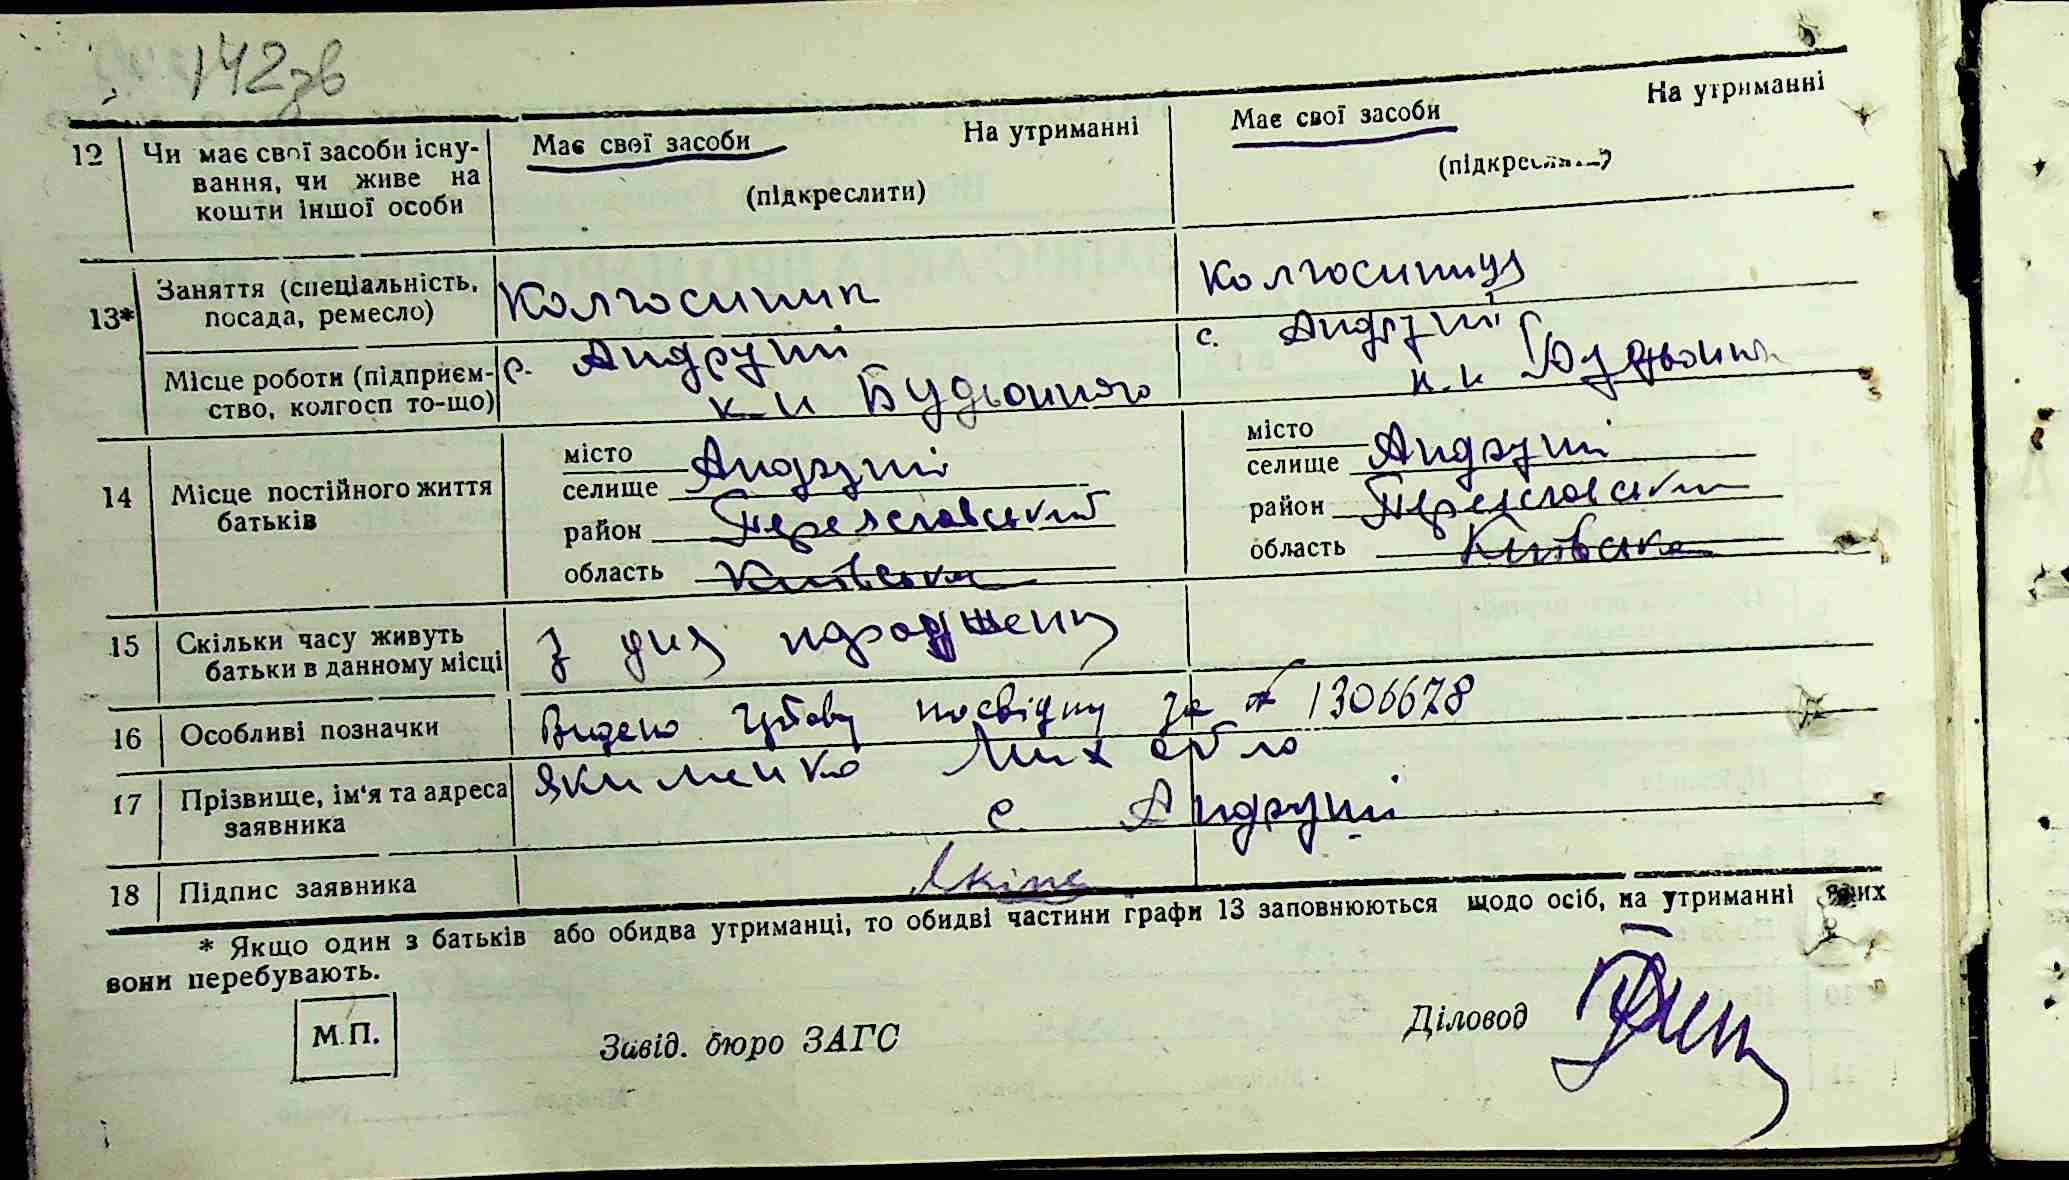 142зв
12 Чи має свої засоби існу- Має свої засоби На утриманні Має свої засоби На утриманні
вання, чи живе на
кошти іншої особи (підкреслити) (підкреслити)
13* Заняття (спеціальність, Колгоспник Колгоспниця
посада, ремесло)
Місце роботи (підприєм- с. Андруші с. Андруші
ство, колгосп то-що) к-п Будьонного к-п Будьонного
14 Місце постійного життя місто
батьків селище Андруші
район Переяславський
область Київська
місто
селище Андруші
район Переяславський
область Київська
15 Скільки часу живуть З дня народження
батьки в данному місці
16 Особливі позначки Видано посвідку за № 1306678
17 Прізвище, ім'я та адреса Якименко
заявника с. Андруші
18 Підпис заявника
* Якщо один з батьків або обидва утриманці, то обидві частини графи 13 заповнюються щодо осіб, на утриманні яких
вони перебувають.
М.П.
Завід. бюро ЗАГС
Діловод